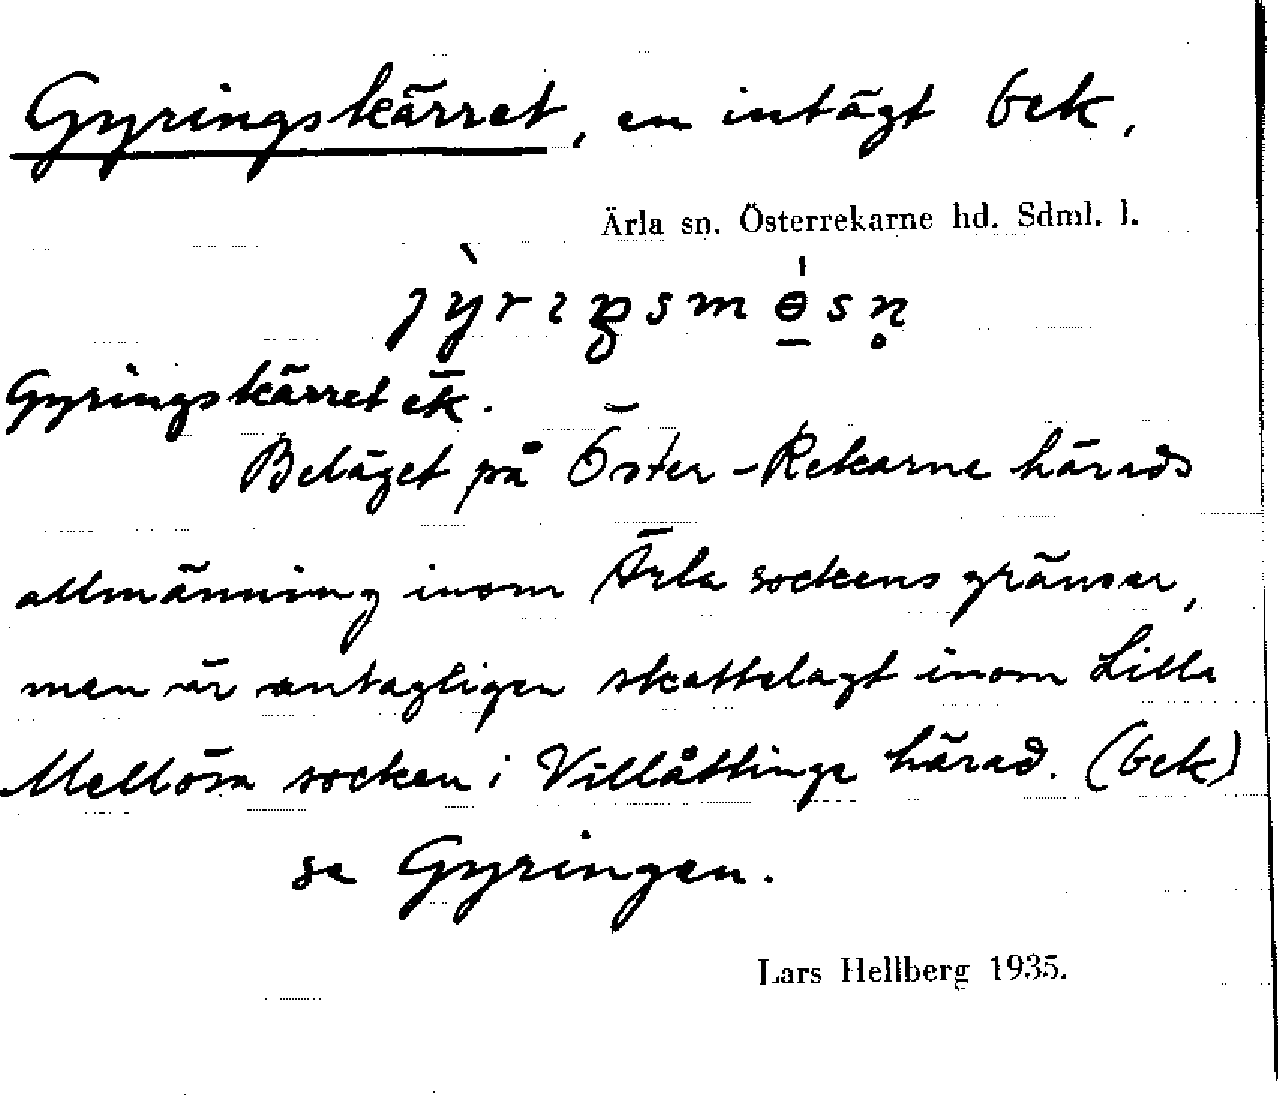 Gyringskärret, en intägt bek,
Ärla sn. Österrekarne hd. Sdml. l.
Gyringskärret ek.
Beläget på Öster-Rekarne härads
allmänning inom Ärla sockens gränser,
men är antagligen skattelagt inom Lilla
Mellösa socken i Villåttinge härad. (bek)
se Gyringen.
Lars Hellberg 1935.